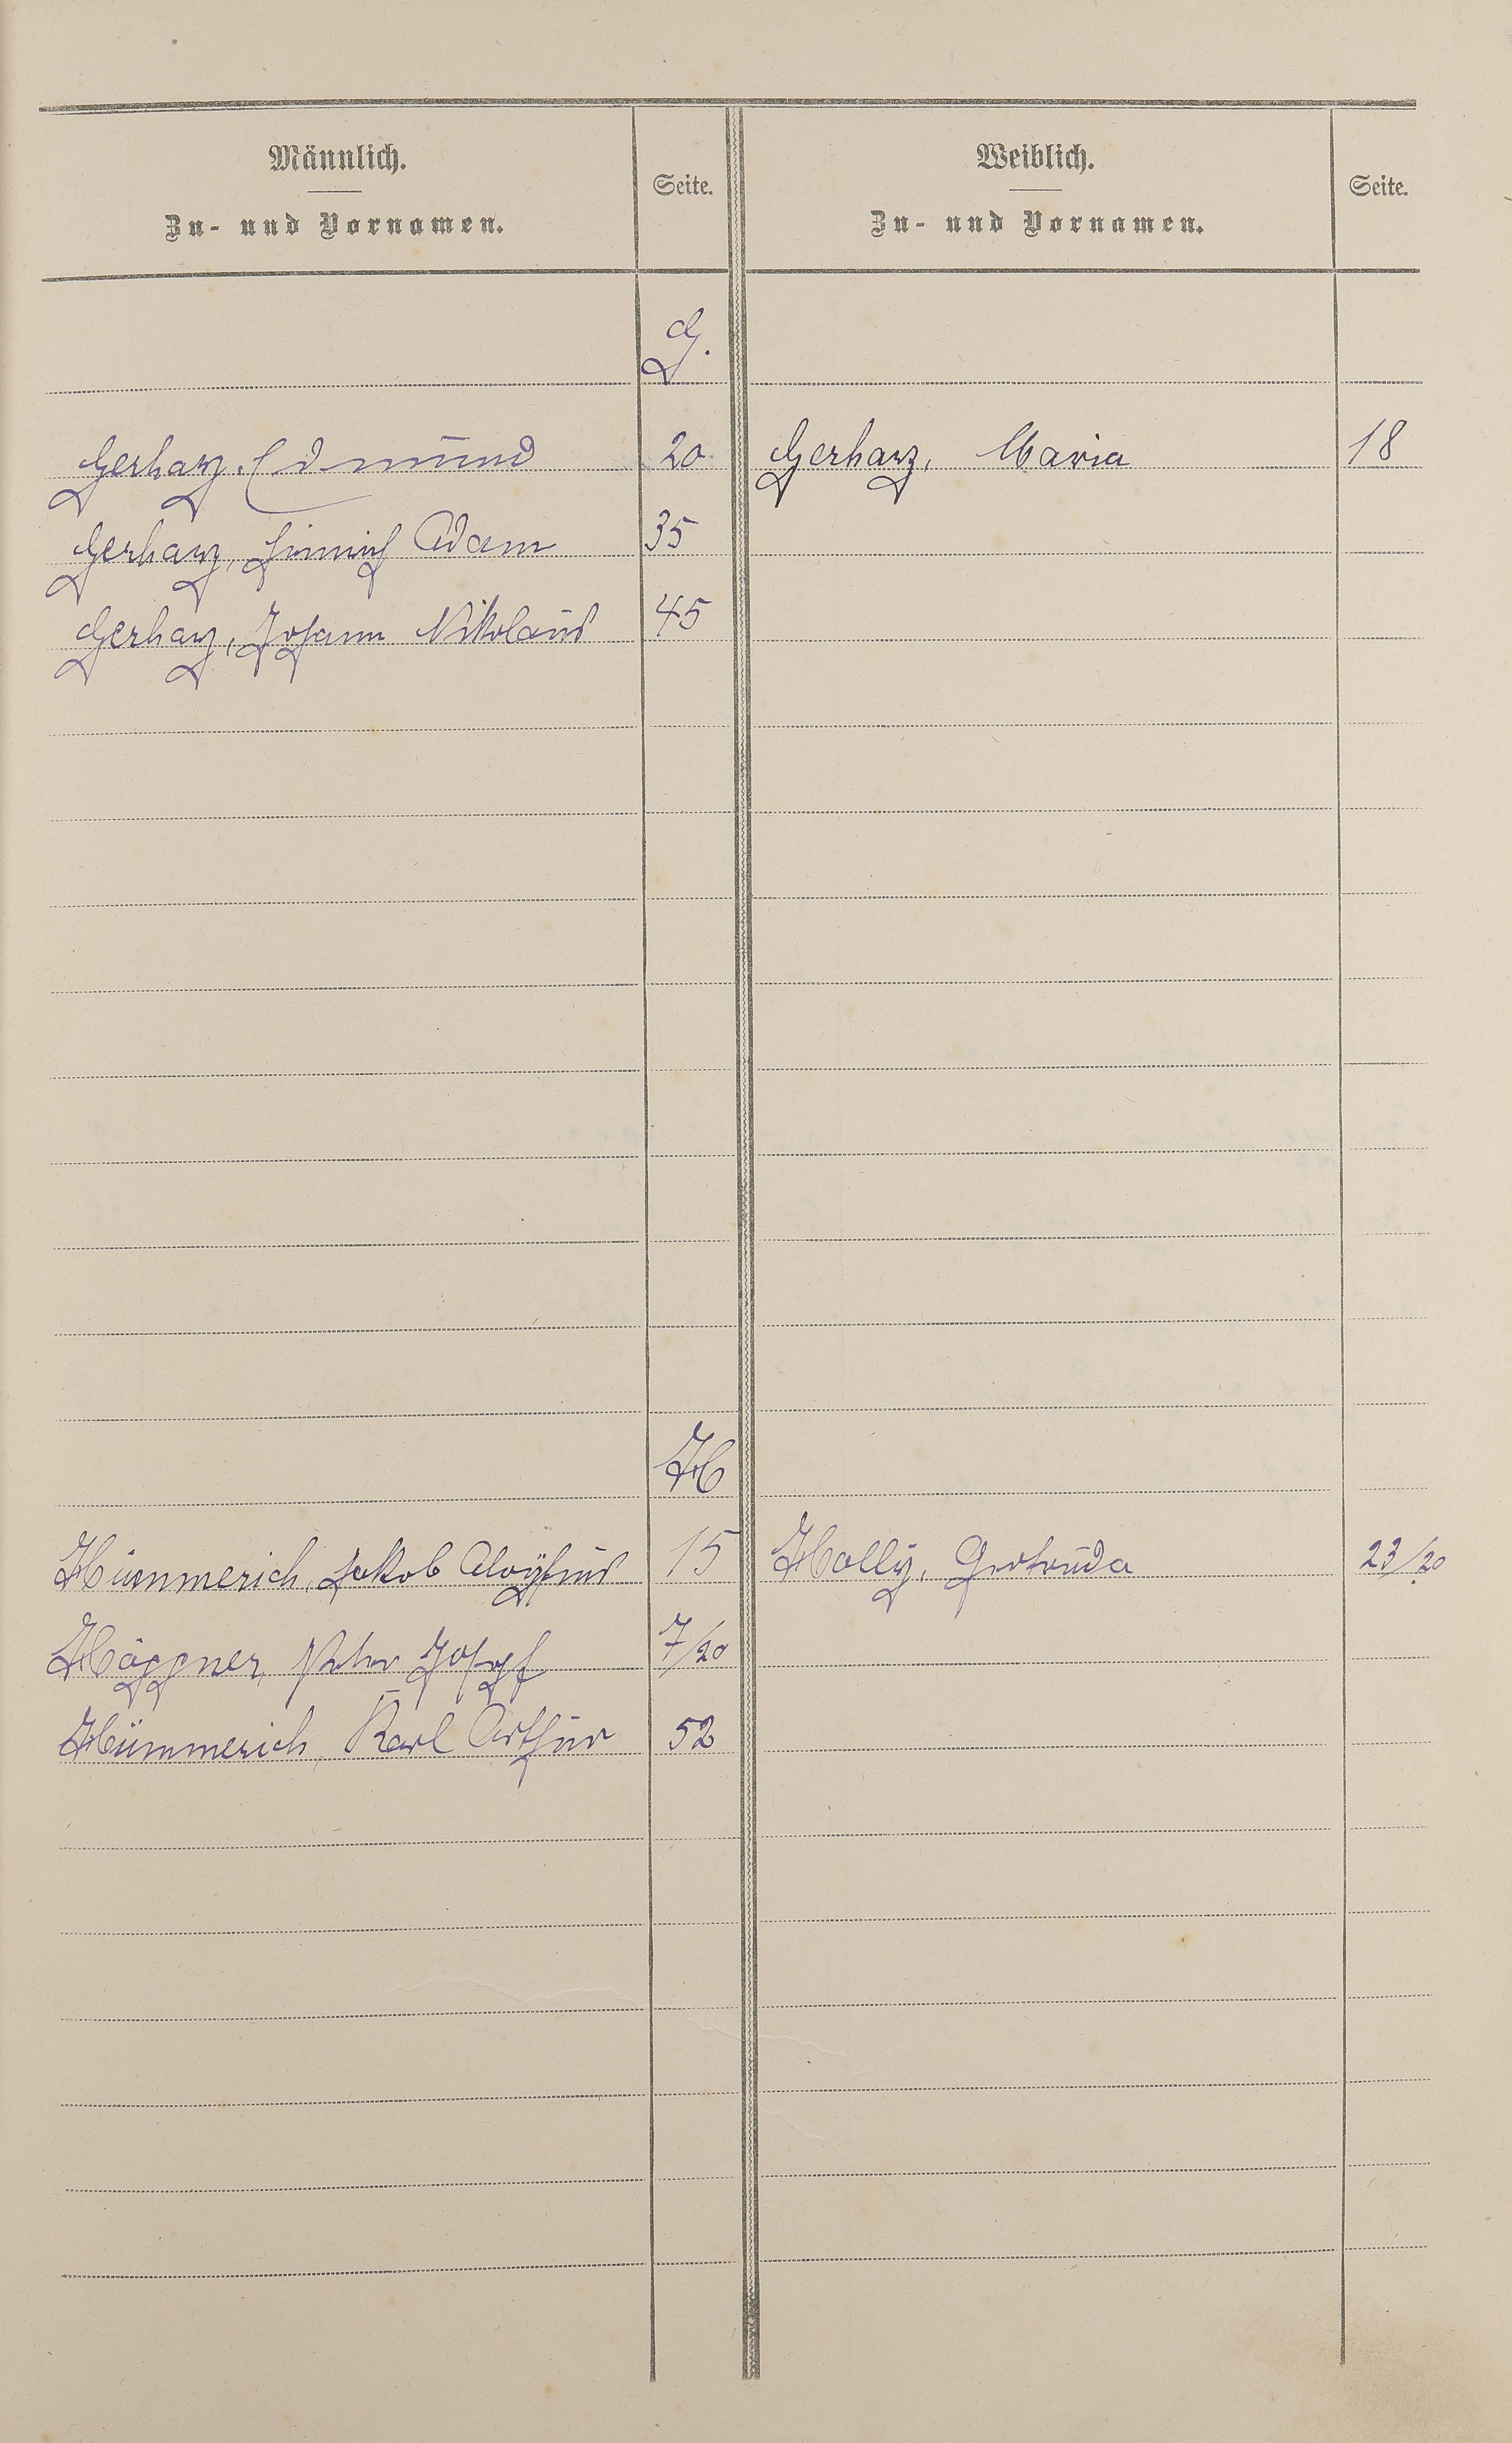 Männlich.
Zu- und Vornamen.
Seite.
Weiblich.
Zu- und Vornamen.
Seite.
G.
Gerharz, Edmund 20 Gerharz, Maria 18
Gerharz, Heinrich Adam 35
Gerharz, Johann Nikolaus 45
H
Hümmerich, Jakob Aloysius 15 Holly, Gertruda 23/20
Höppner, Peter Josef 7/20
Hümmerich, Karl Arthur 52